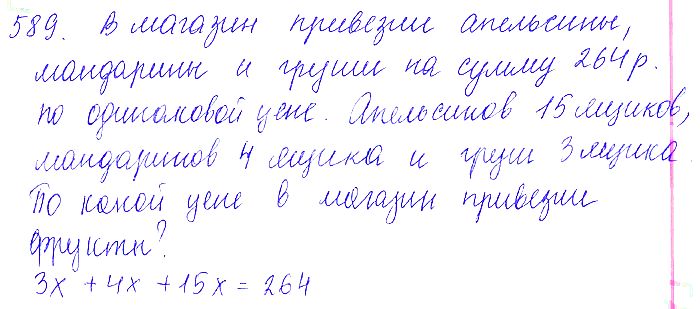 589. В магазин привезли апельсины,
мандарины и груши на сумму 264 р.
по одинаковой цене. Апельсинов 15 ящиков,
мандаринов 4 ящика и груш 3 ящика.
По какой цене в магазин привезли
фрукты?
3x + 4x + 15x = 264